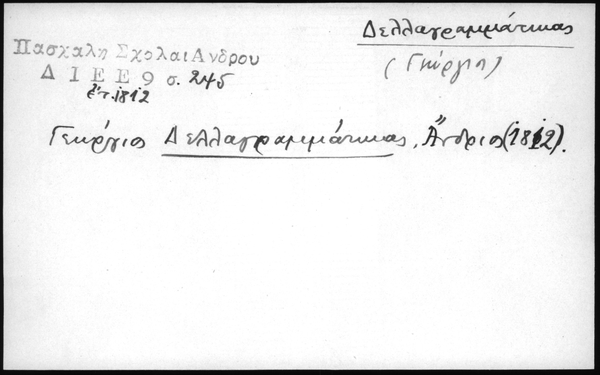 Δελλαγραμμάτικας
(Γεώργιος)
Πασχαλη Σχολαι Ανδρου
Δ Ι Ε Ε 9 σ. 245
ἔτ. 1812
Γεώργιος Δελλαγραμμάτικας, Ἄνδριος (1812).